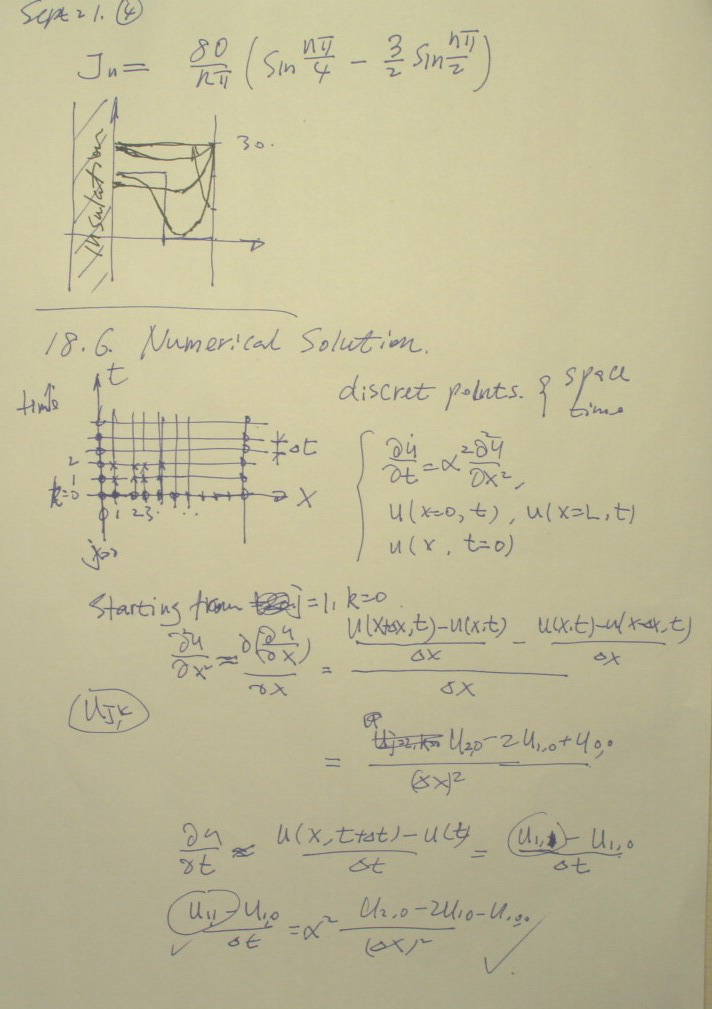 Sept 21. ④
Jn = 80/nπ ( Sin nπ/4 - 3/2 Sin nπ/2 )
insulation
30.
18.6. Numerical Solution.
t
time
discret points. { space
time
Δt
2
1
k=0
x
0 1 2 3 . . .
j=0
∂u/∂t = α² ∂²u/∂x²,
u(x=0, t), u(x=L, t)
u(x, t=0)
Starting from j=1, k=0
∂²u/∂x² ≈ ∂(∂u/∂x)/∂x = ((u(x+Δx,t)-u(x,t))/Δx - (u(x,t)-u(x-Δx,t))/Δx)/Δx
UJ,k
= (U2,0 - 2U1,0 + U0,0)/(Δx)²
∂u/∂t ≈ (u(x,t+Δt)-u(t))/Δt = (U1,1 - U1,0)/Δt
(U1,1 - U1,0)/Δt = α² (U2,0 - 2U1,0 -
)/(Δx)² ✓
✓